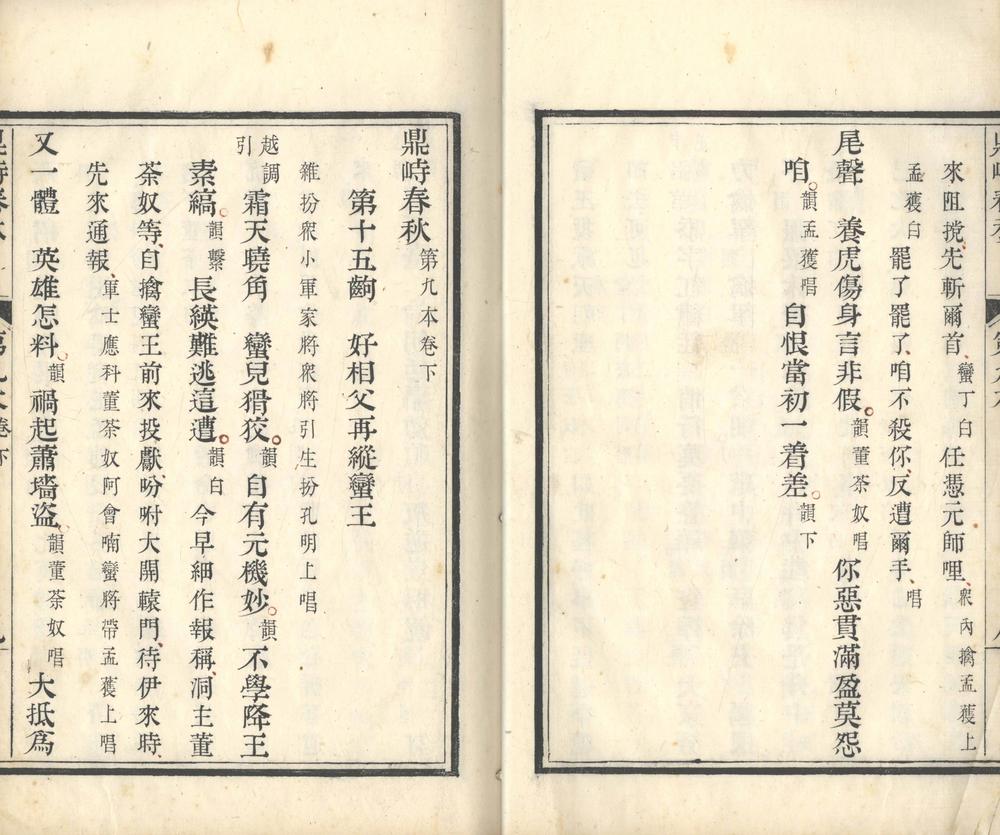 來阻攩先斬爾首蠻丁白任憑元帥哩衆內擒孟獲上
孟獲白罷了罷了咱不殺你反遭爾手唱
尾聲 養虎傷身言非假韻董荼奴唱你惡貫滿盈莫怨
咱韻孟獲唱自恨當初一着差韻下
鼎峙春秋 第九本卷下
第十五齣 好相父再縱蠻王
雜扮衆小軍家將衆將引生扮孔明上唱
越調引 霜天曉角 蠻兒猾狡韻自有元機妙韻不學降王
素縞韻繫長纓難逃這遭韻白今早細作報稱洞主董
荼奴等自擒蠻王前來投獻吩咐大開轅門待伊來時
先來通報軍士應科董荼奴阿會喃蠻將帶孟獲上唱
又一體 英雄怎料韻禍起蕭墻盜韻董荼奴唱大抵爲